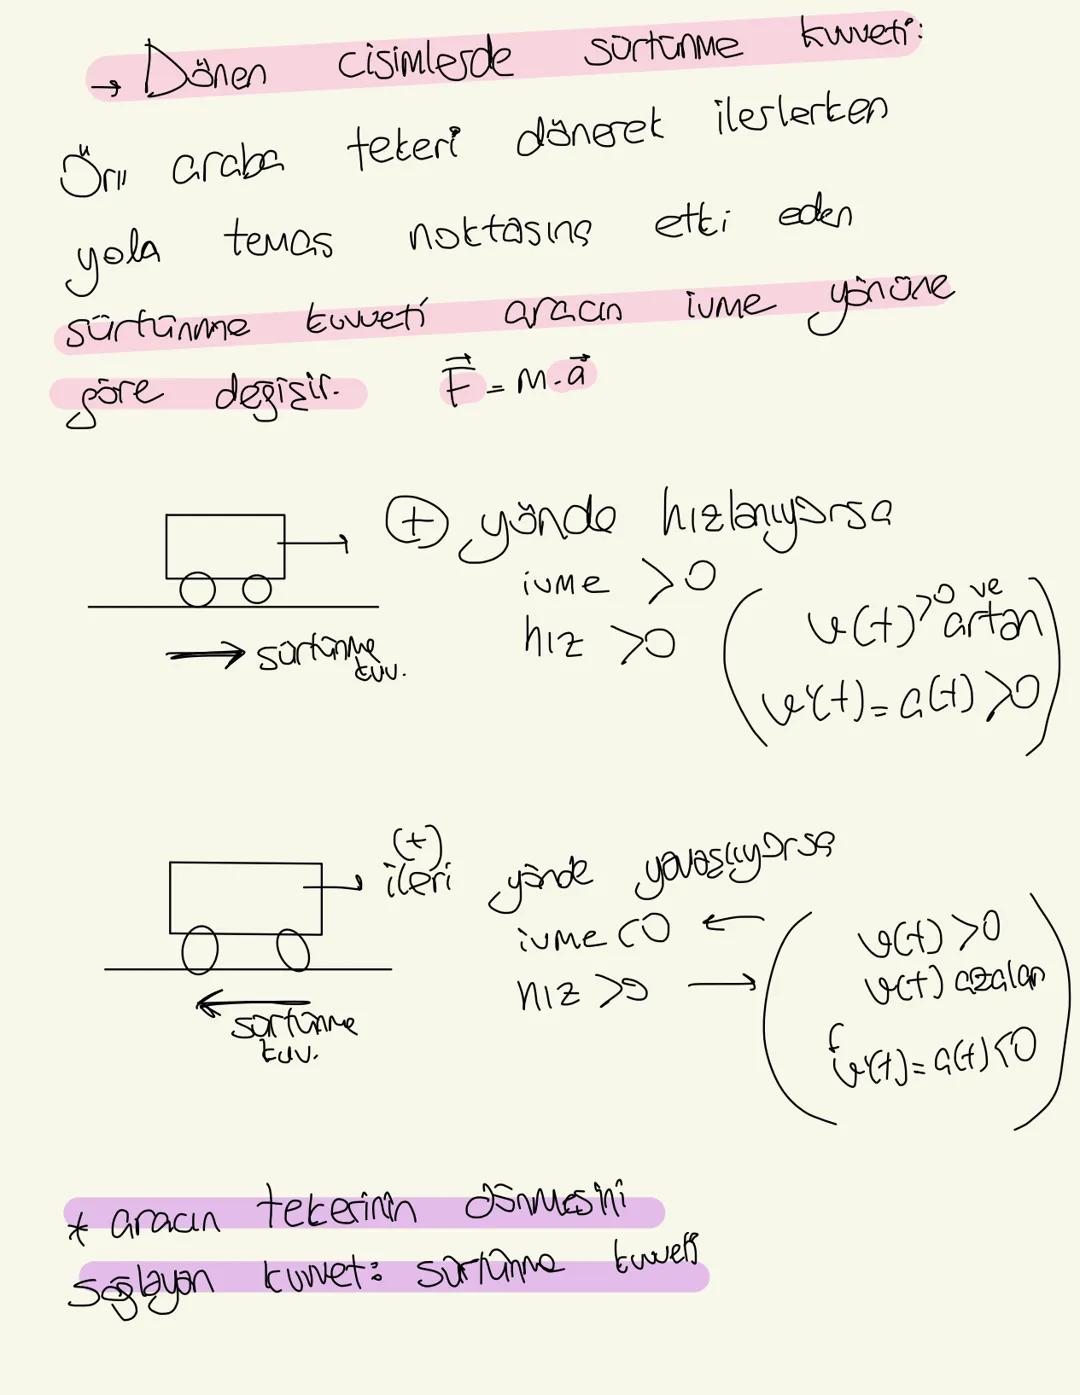 → Dönen cisimlerde sürtünme kuvveti:
Örn araba tekeri dönerek ilerlerken
yola temas noktasına etki eden
sürtünme kuvveti aracın ivme yönüne
göre değişir. F⃗ = m.a⃗
(+) yönde hızlanıyorsa
ivme >0
hız >0
v(t)>0 ve artan
v'(t)=a(t)>0
→ sürtünme kuv.
(+)
ileri yönde yavaşlıyorsa
ivme <0 ←
hız >0 →
v(t) >0
v(t) azalan
v'(t)=a(t)<0
← sürtünme
kuv.
* aracın tekerinin dönmesini
sağlayan kuvvet: sürtünme kuvveti